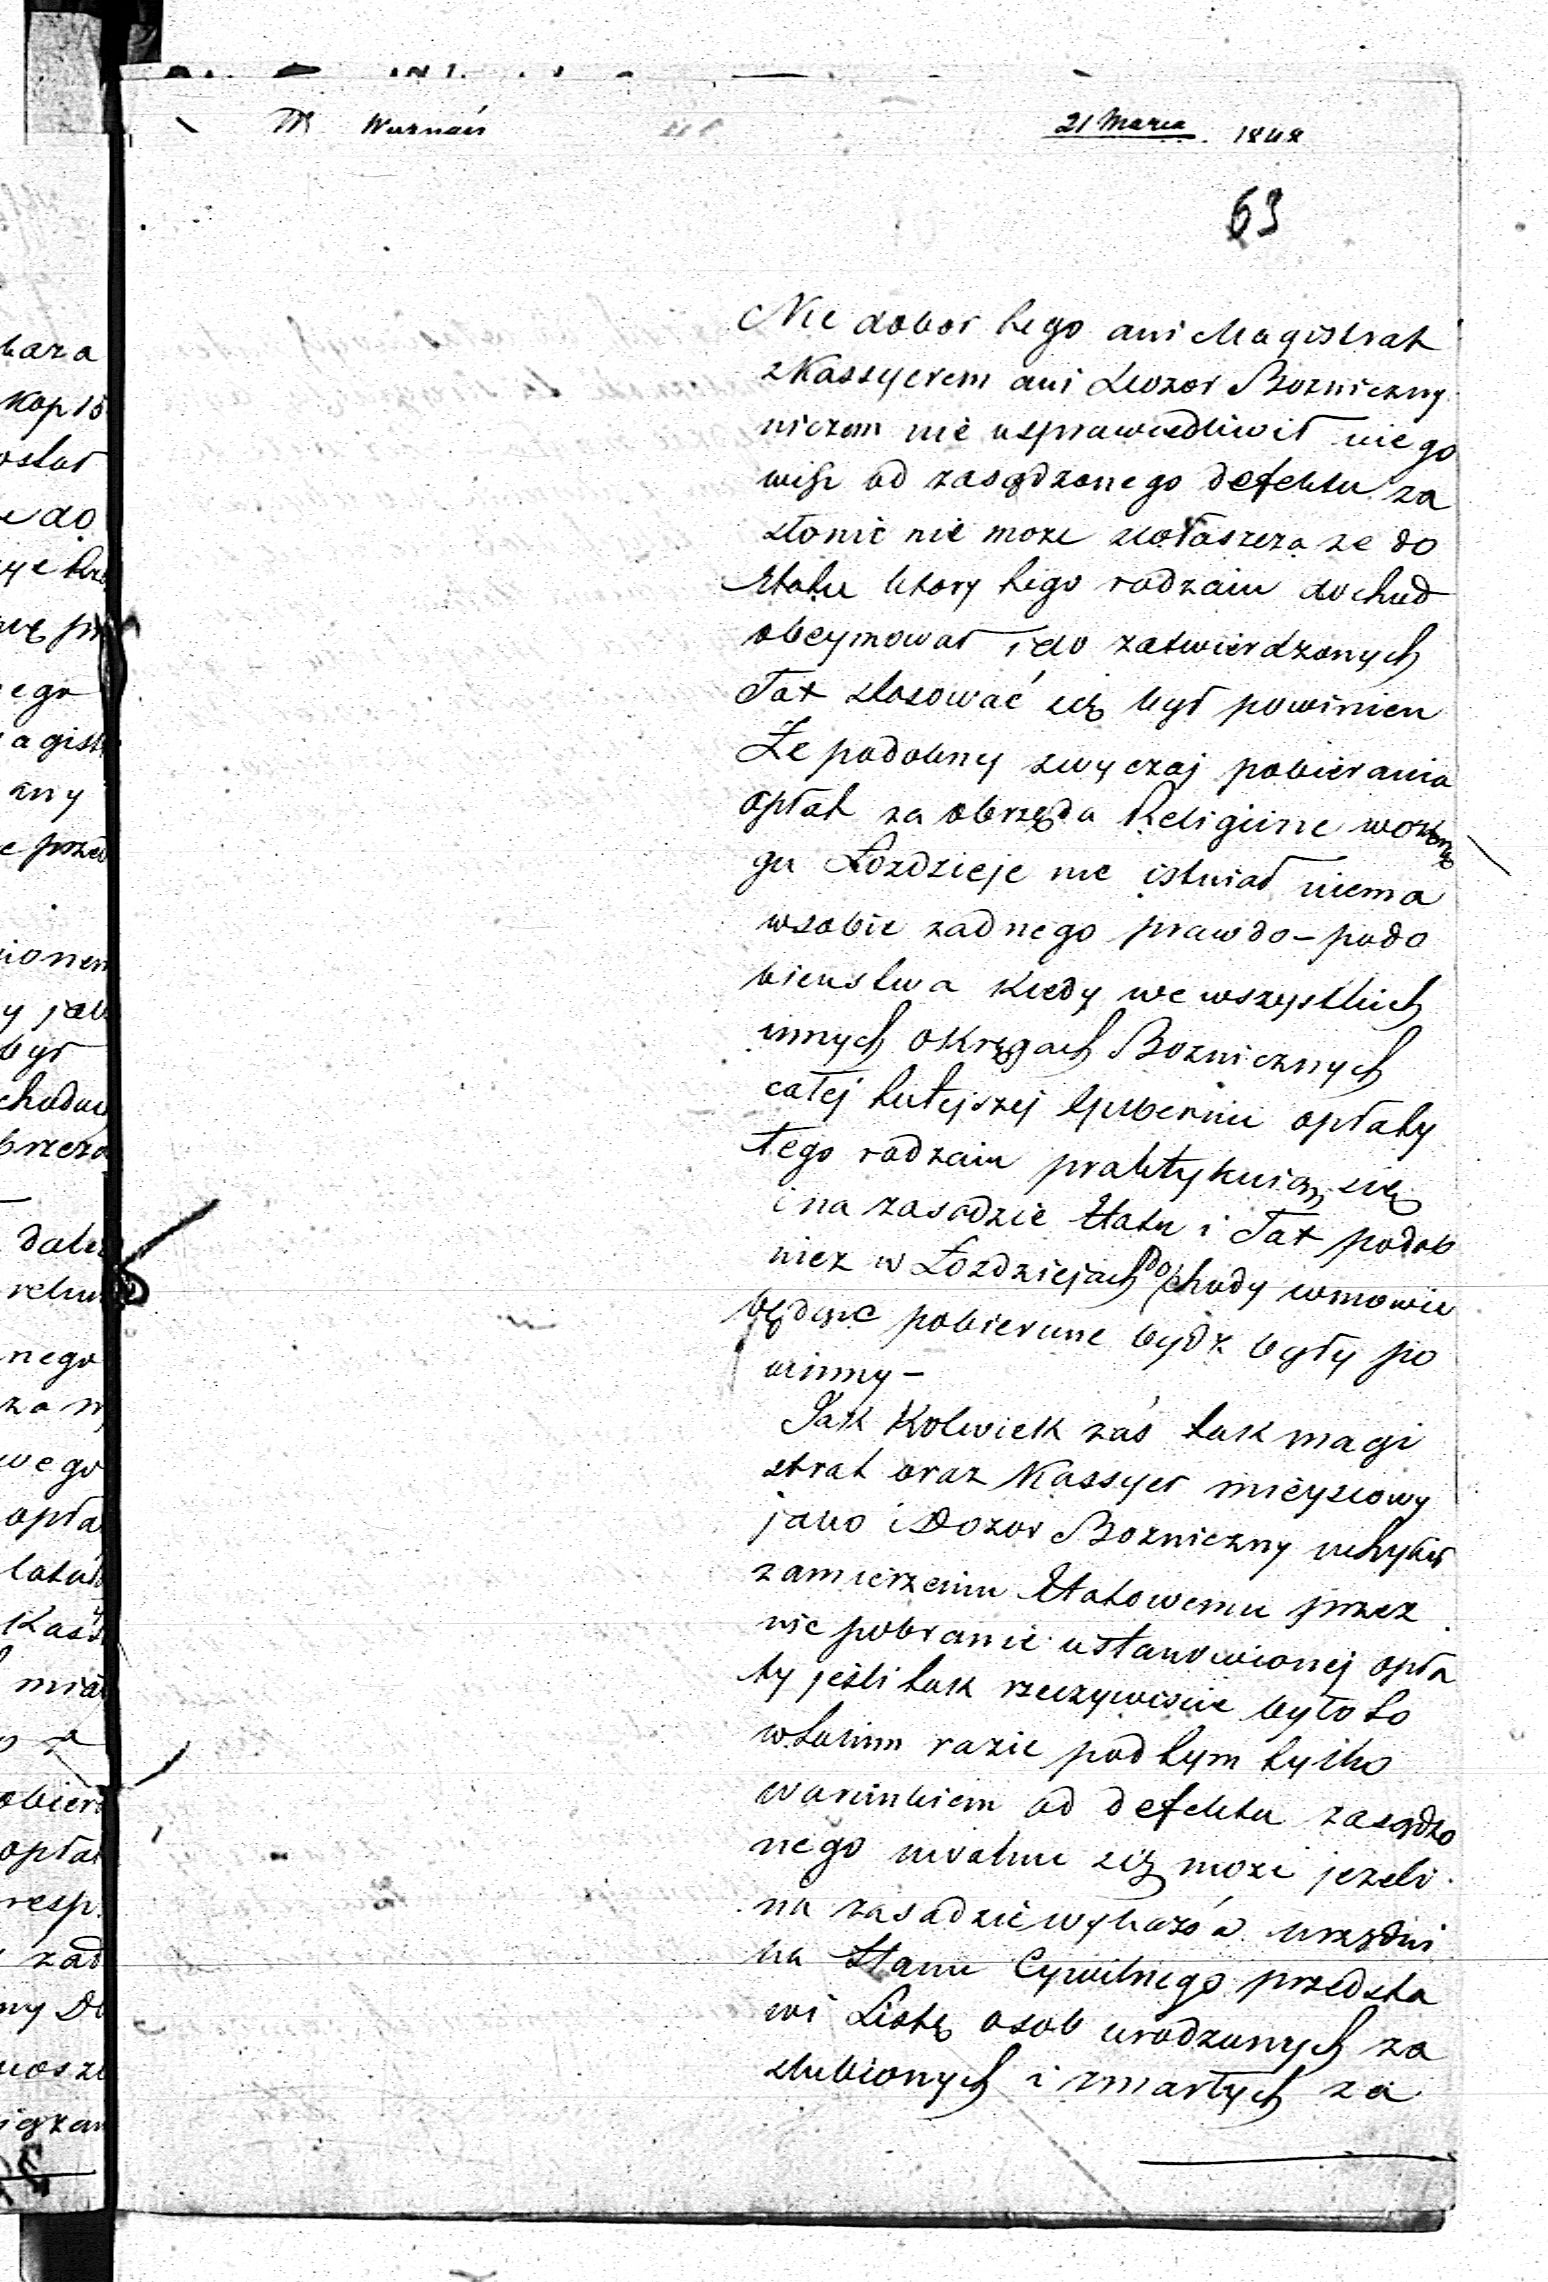 21 Marca 1848
63
Nie dobor tego ani Magistrat
z Kassyerem ani Dozor Bozniczny
niczem nie usprawiedliwił nie go
więc od zasądzonego defektu za
słonić nie może zwłaszcza ze do
Etatu ktory tego rodzaiu dochod
obeymował i do zatwierdzonych
Tax stosować się był powinien
Że podobny zwyczaj pobierania
opłat za obrzęda Religijne w okrę
gu Łozdzieje nie istniał niema
w sobie zadnego prawdo-podo
bienstwa kiedy we wszystkich
innych okręgach Bozniczych
całej tutejszej Gubernii opłaty
tego rodzaiu praktykuią się
i na zasadzie Etatu i Tax podob
niez w Łozdziejach dochody w mowie
będące pobierane bydz były po
winny -
Jak Kolwiek zaś tak magi
strat oraz Kassyer mieyscowy
jako i Dozor Bozniczny uchybił
zamierzeniu Etatowemu przez
nie pobranie ustanowionej opła
ty jeśli tak rzeczywiscie było to
w takim razie pod tym tylko
warunkiem od defektu zasądzo
nego uwolnic się może jezeli
na zasadzie wykazów urzędni
ka Stanu Cywilnego przedsta
wi Listę osob urodzonych za
slubionych i zmarłych za
bara
Kop 15
został
do
ego
any
był
nego
wego
opła
miał
opłat
resp.
zad